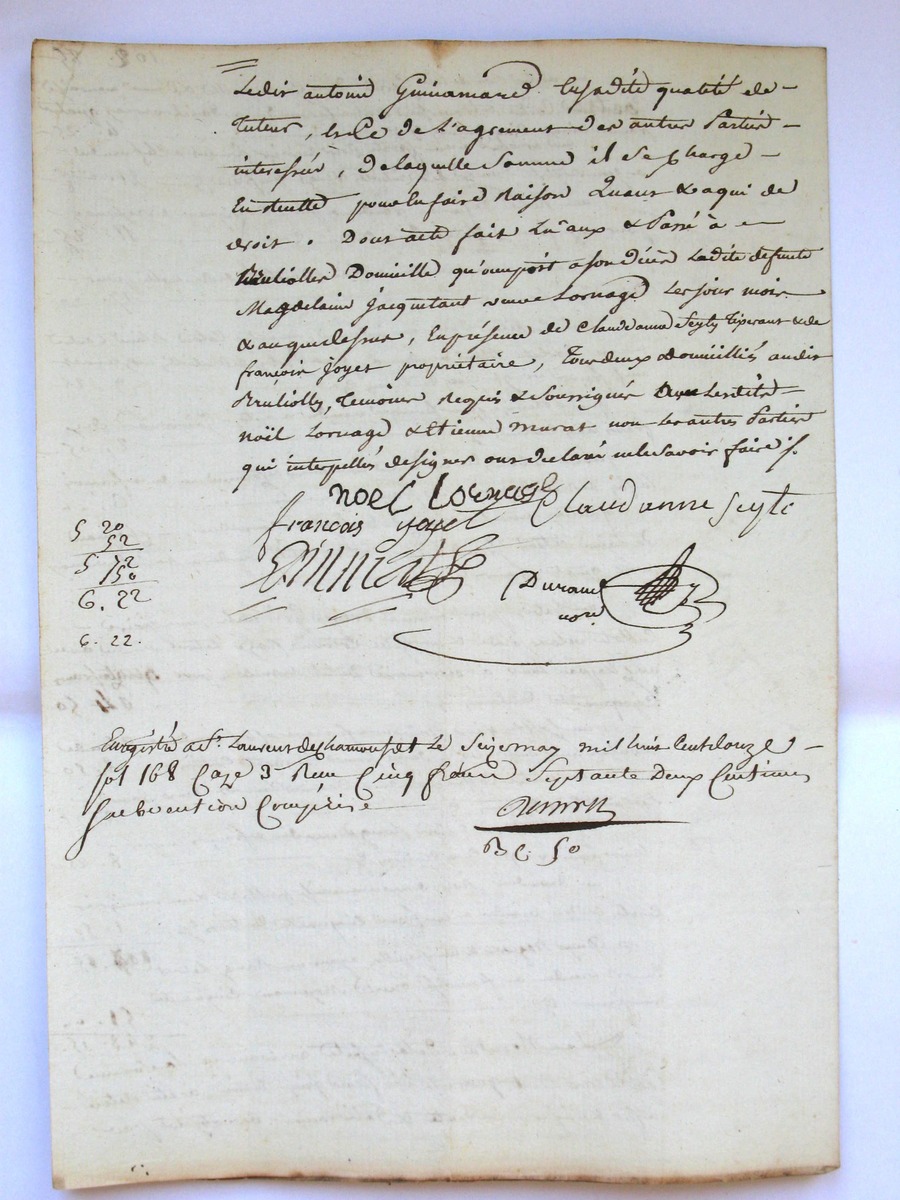 Ledit antoine Guinamard En sadite qualité de -
Tuteur, et Ce de L'agrement des autres Partie -
interessée, de laquelle Somme il Se Charge -
En Recette pour En faire Raison Quant & a qui de
droit. Dont acte fait Lu aux & Passé à -
Brulliolles Domicille qu'ocupoit a son décès Ladite defunte
Magdelaine Jacquetant veuve Lornage Les jour mois
& an que dessus, En présence de Claude anne Seyty & de
françois Joyet propriétaire, Tous deux domicilliés audit
Brulliolly, Temoins Requis & Soussignés avec Lesdits
Noël Lornage & Etienne Murat non Les autres Parties
qui interpellés de signer ont déclaré ne le Savoir faire /.
noel Lornage Claud anne Seyte
françois joyet
E Murat
Durand
nore
5 20
52
5 72
150
6. 22
6. 22.
Enregistré a St. Laurent de Chamousset Le Seize may mil huit Cent douze -
fol 168 Caze 3 Reçu Cinq francs Septante Deux Centimes
Subvention Comprise
BC. 50